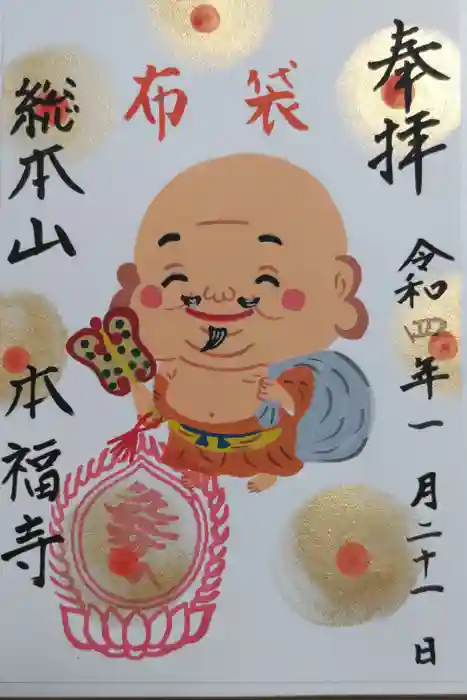 奉拝
令和四年一月二十一日
布袋
総本山 本福寺